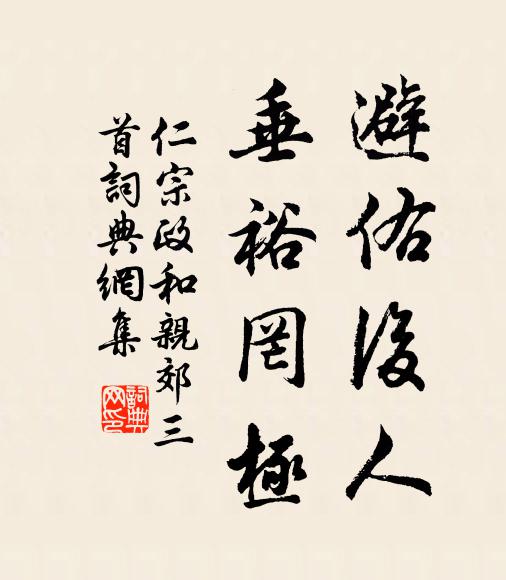 避佑後人
垂裕罔極
仁宗政和親郊三
首詞典網集
詞典
网印